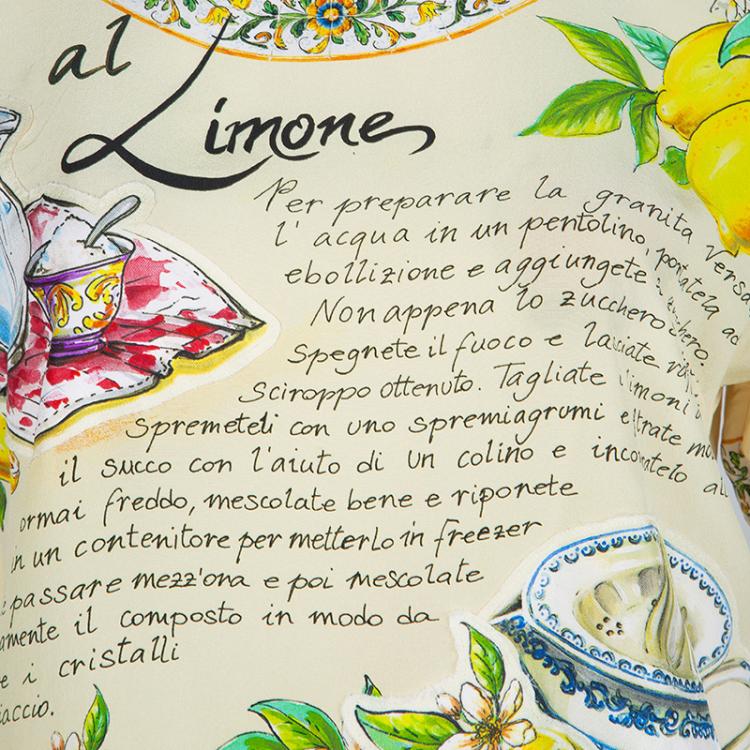 al
Limone
Per preparare la granita versa
l'acqua in un pentolino, portatela ad
ebollizione e aggiungete zucchero.
Non appena lo zucchero
spegnete il fuoco e lasciate
sciroppo ottenuto. Tagliate limoni
Spremeteli con uno spremiagrumi e filtrate
il succo con l'aiuto di un colino e al
ormai freddo, mescolate bene e riponete
in un contenitore per metterlo in freezer
passare mezz'ora e poi mescolate
amente il composto in modo da
e i cristalli
iaccio.